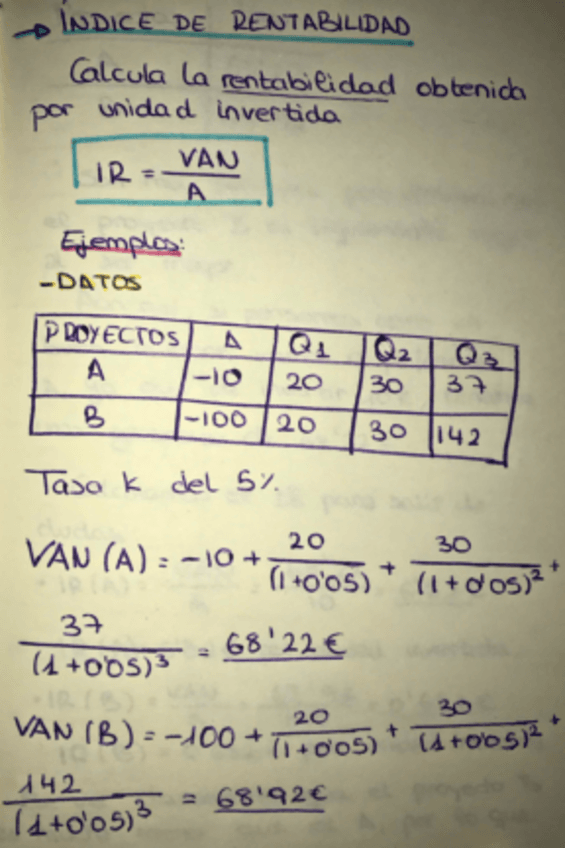 → ÍNDICE DE RENTABILIDAD
Calcula la rentabilidad obtenida
por unidad invertida
IR = VAN / A
Ejemplos:
- DATOS
PROYECTOS A Q1 Q2 Q3
A -10 20 30 37
B -100 20 30 142
Tasa k del 5%.
VAN (A) = -10 + 20 / (1+0'05) + 30 / (1+0'05)² +
37 / (1+0'05)³ = 68'22€
VAN (B) = -100 + 20 / (1+0'05) + 30 / (1+0'05)² +
142 / (1+0'05)³ = 68'92€